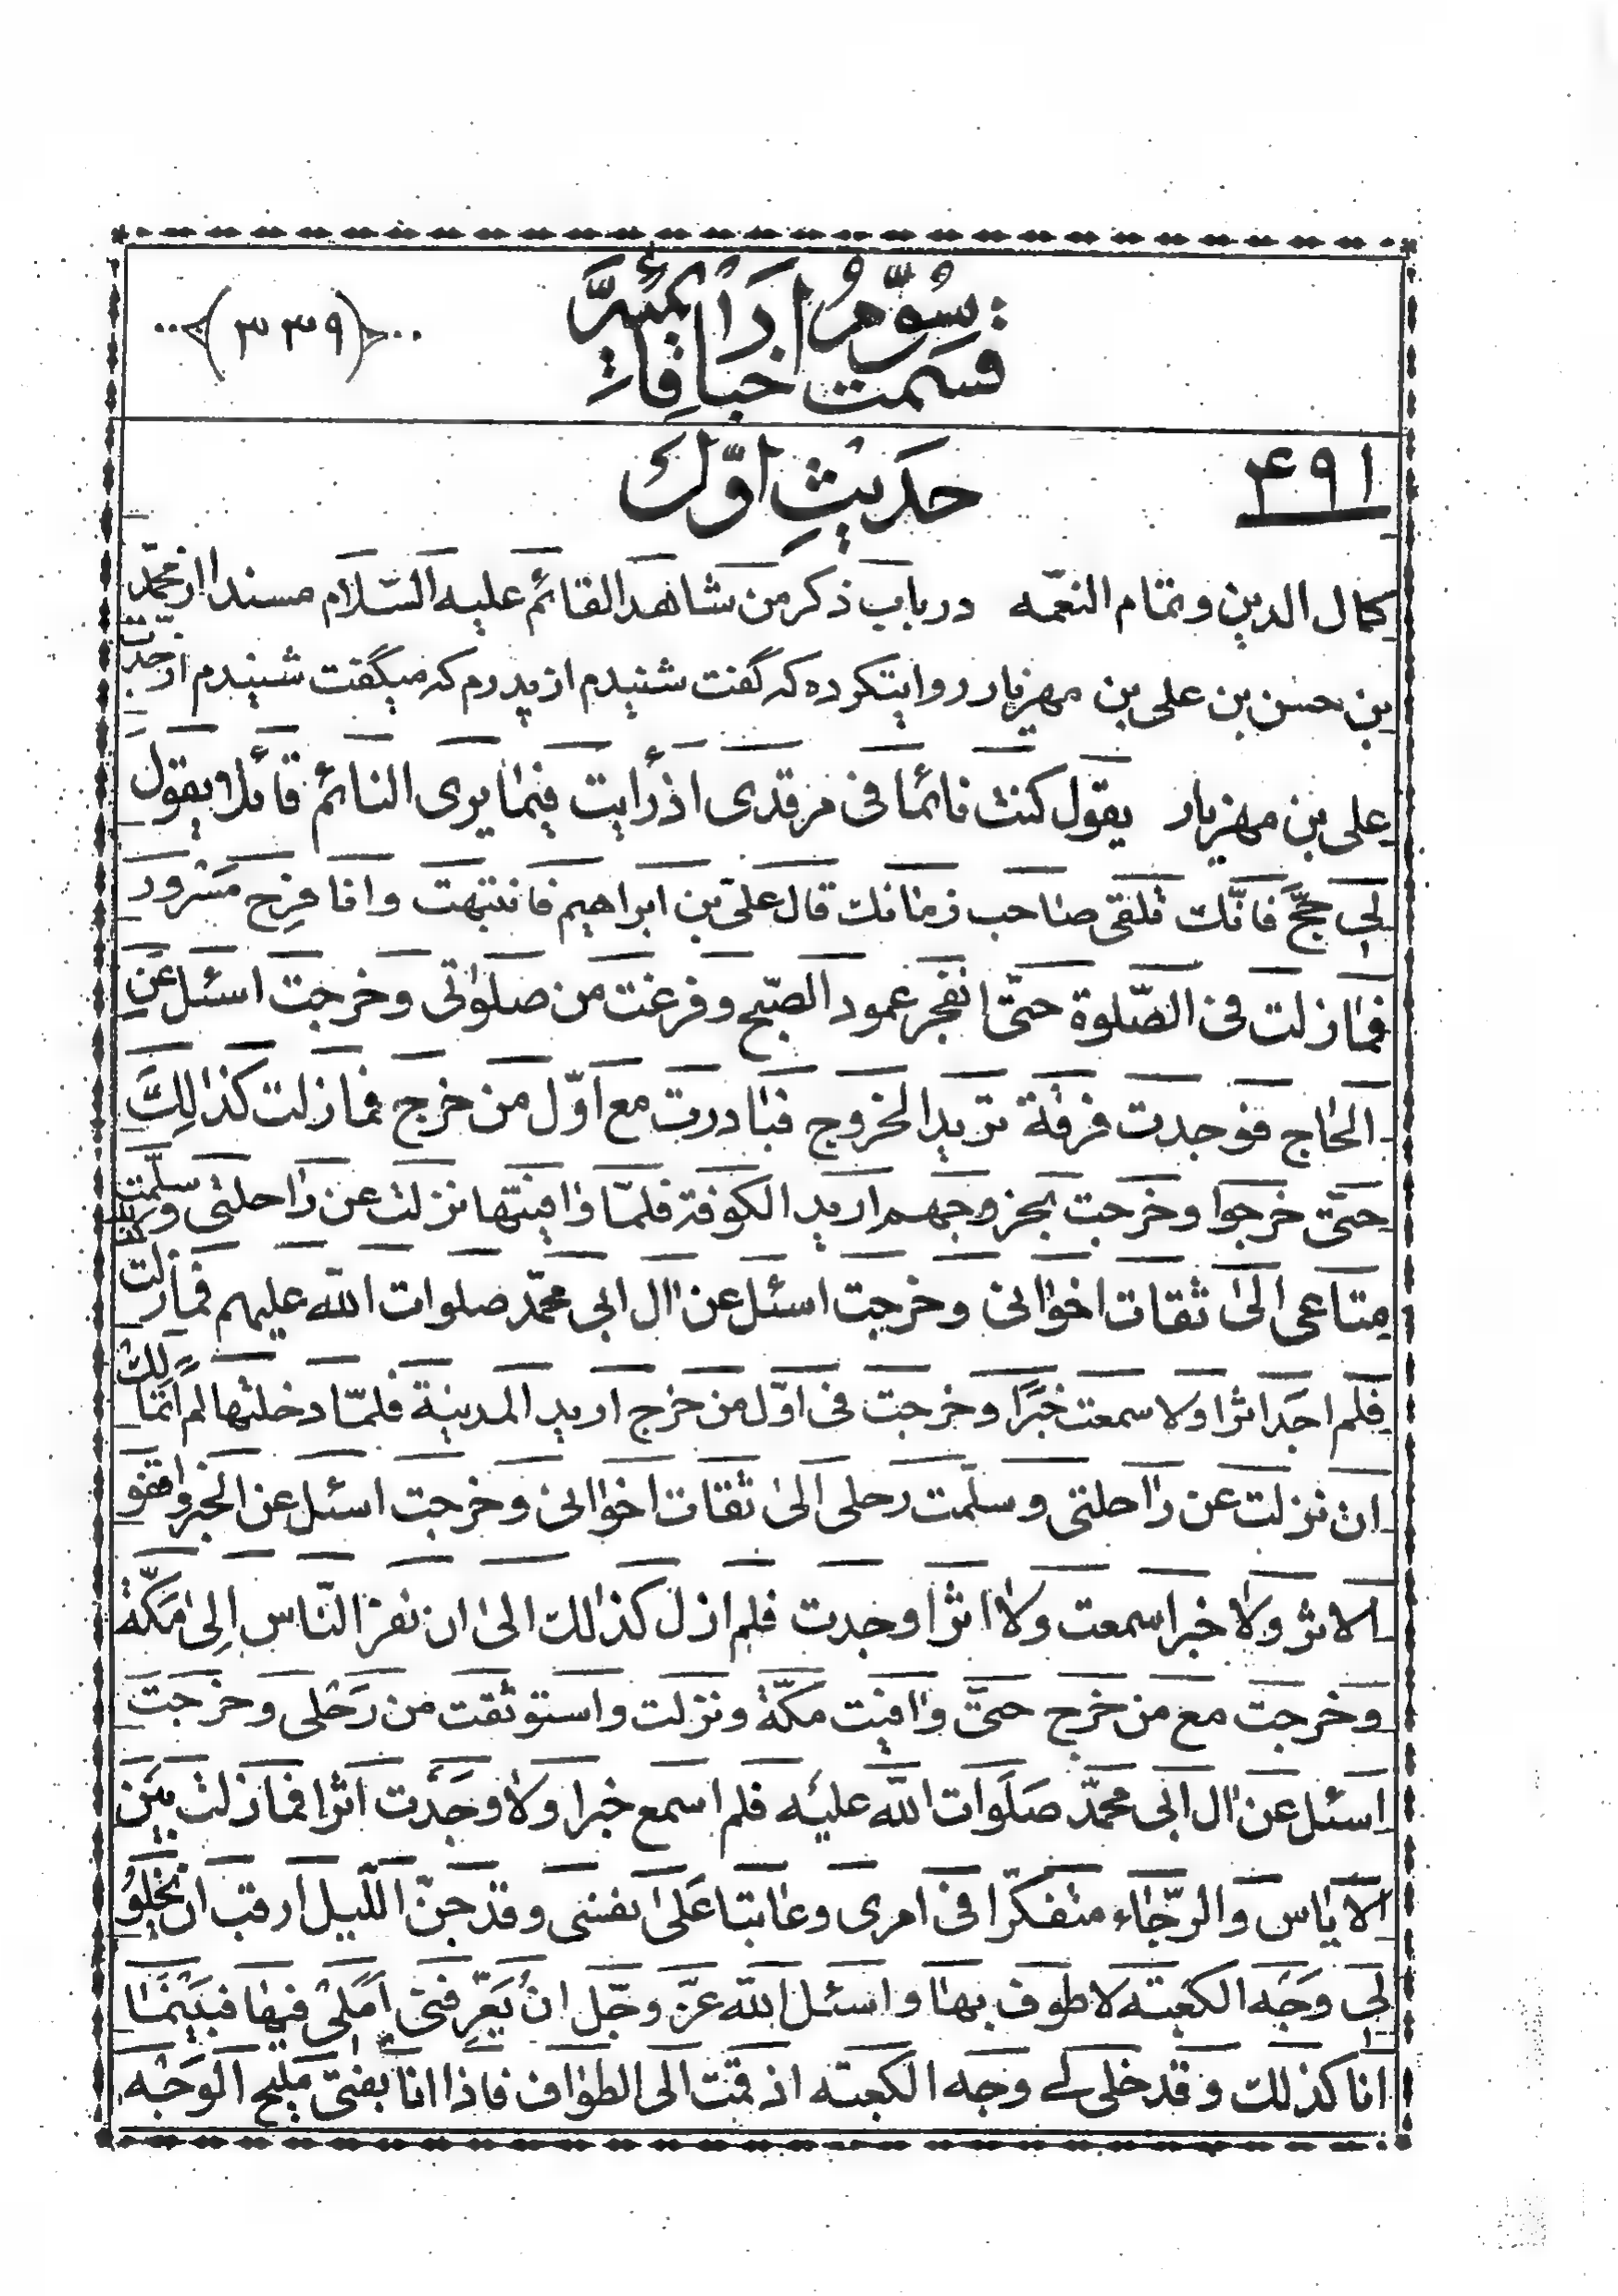 قسمت سوّم از اخبار لقائیّه
(۳۳۹)
۴۹۱
حدیثِ اوّل
کمال الدین و تمام النعمه در باب ذکر من شاهد القائم علیه السّلام مسندا از محمّد
بن حسن بن علی بن مهزیار روایتکرده که گفت شنیدم از پدرم که میگفت شنیدم از جدّت
علی بن مهزیار یقول کنت نائما فی مرقدی اذ رأیت فیما یری النائم قائلا یقول
لی حجّ فانّک تلقی صاحب زمانک قال علیّ بن ابراهیم فانتبهت وانا فرح مسرور
فما زلت فی الصّلوة حتّی انفجر عمود الصّبح وفرغت من صلوٰتی وخرجت اسئل عن
الحاج فوجدت فرقة ترید الخروج فبادرت مع اوّل من خرج فما زلت کذٰلک
حتّی خرجوا وخرجت بخروجهم ارید الکوفة فلمّا وافیتها نزلت عن راحلتی وسلّمت
متاعی الیٰ ثقات اخوانی وخرجت اسئل عن اٰل ابی محمّد صلوات اللّه علیهم فما زلت کذلک
فلم اجد اثرا ولا سمعت خبرًا وخرجت فی اوّل من خرج ارید المدینة فلمّا دخلتها لم اتمالک
ان نزلت عن راحلتی وسلّمت رحلی الیٰ ثقات اخوانی وخرجت اسئل عن الخبر واقفو
الاثر ولا خبرا سمعت ولا اثرا وجدت فلم ازل کذٰلک الیٰ ان نفر النّاس الیٰ مکّة
وخرجت مع من خرج حتّی وافیت مکّة ونزلت واستوثقت من رحلی وخرجت
اسئل عن اٰل ابی محمّد صلوات اللّه علیه فلم اسمع خبرا ولا وجدت اثرا فما زلت بین
الایاس والرّجاء متفکّرا فی امری وعاتبا علیٰ نفسی وقد جنّ اللّیل ارقب ان یخلو
لی وجه الکعبة لاطوف بها واسئل اللّه عزّ وجلّ ان یعرّفنی املی فیها فبینما
انا کذلک وقد خلی لی وجه الکعبة اذ قمت الی الطواف فاذا انا بفتی ملیح الوجه